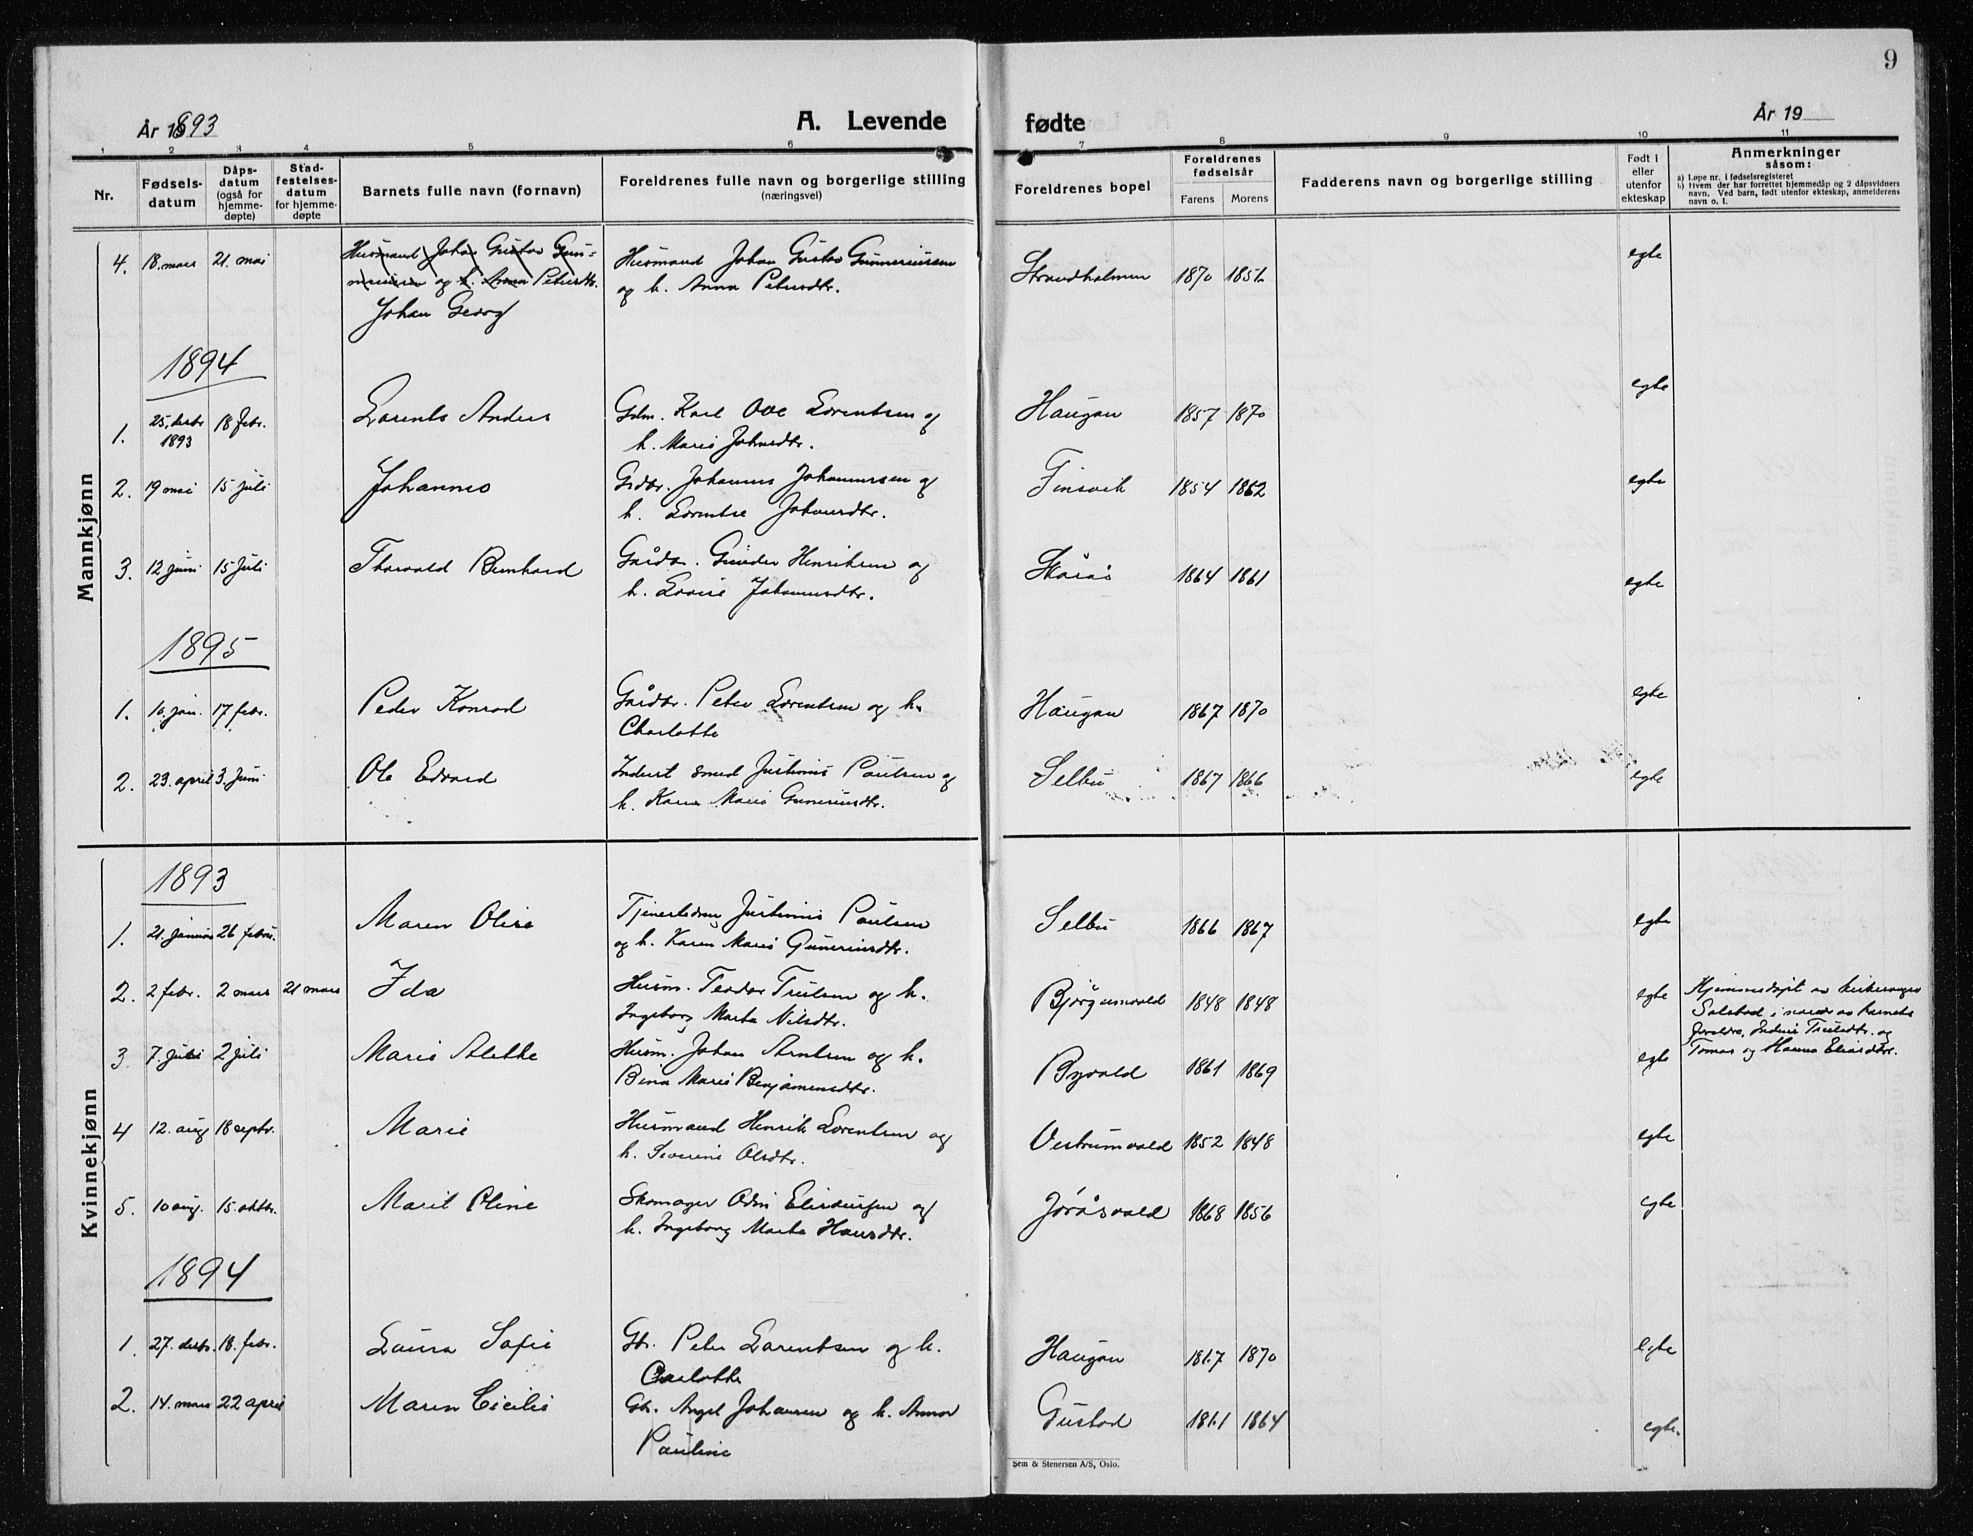 9
År 1893
A. Levende
fødte
År 19
1 2 3 4 5 6 7 8 9 10 11
Nr.
Fødsels-
datum
Dåps-
datum
(også for
hjemme-
døpte)
Stad-
festelses-
datum
for hjemme-
døpte
Barnets fulle navn (fornavn)
Foreldrenes fulle navn og borgerlige stilling
(næringsvei)
Foreldrenes bopel
Foreldrenes
fødselsår
Farens Morens
Fadderens navn og borgerlige stilling
Født i
eller
utenfor
ekteskap
Anmerkninger
såsom:
a) Løpe nr. i fødselsregisteret
b) Hvem der har forrettet hjemmedåp og 2 dåpsvidners
navn. Ved barn, født utenfor ekteskap, anmelderens
navn o. l.
Mannkjønn
4. 18. mars 21. mai Husmand Johan Gustav Gun= Husmand Johan Gustav Gunneriussen Strandholmen 1870 1851 egte
neriussen og h. Anna Petersdtr. og h. Anna Petersdtr.
Johan Georg
1894
1. 25. desbr 18 febr. Lorents Anders Gdm. Karl Ove Lorentsen og Haugan 1857 1870 egte
1893 h. Marie Johnsdtr.
2. 19 mai 15 juli Johannes Grdbr. Johannes Johannessen og Finsvik 1854 1862 egte
h. Lorentse Johansdtr.
3. 12 juni 15 juli Thorvald Bernhard Gårdbr. Gunder Henriksen og Skårås 1864 1861 egte
h. Lovise Johannesdtr.
1895
1. 10. jan. 17 febr. Peder Konrad Gårdbr. Peter Lorentsen og h. Haugan 1867 1870 egte
Charlotte
2. 23. april 3. juni Ole Edvard Inderst smed Justinus Paulsen og Selbu 1867 1866 egte
h. Karen Marie Gunneriusdtr.
Kvinnekjønn
1893
1. 21. januar 26 febru. Maren Olise Tjenestedreng Justinus Paulsen Selbu 1866 1867 egte
og h. Karen Marie Gunneriusdtr.
2. 2 febr. 2 mars 21 mars Ida Husm. Teodor Trulsen og h. Bjørgumvald 1848 1848 egte Hjemmedøpt av kirkesanger
Ingeborg Marta Nilsdtr. Solstad i nærvær av barnets
foreldre, Indris Trulsdtr. og
3 7. juli 2 juli Marie Alette Husm. Johan Arntsen og h. Byvald 1861 1869 egte Tomas og Hanna Eliasdtr.
Bina Marie Benjaminsdtr.
4 12. aug 18 septr. Marie Husmand Henrik Lorentsen og Vestrumvald 1852 1848 egte
h. Severine Olsdtr.
5. 10 aug. 15. oktbr. Marit Oline Skomager Odin Elisæussen og Jøråsvald 1868 1856 egte
h. Ingeborg Marta Hansdtr.
1894
1. 27. desbr. 18. febr. Laura Sofie Gbr. Peter Lorentsen og h. Haugan 1867 1870 egte
Charlotte
2. 14. mars 22 april Maren Cicilie Gbr. Angel Johansen og h. Anna Gustad 1861 1864 egte.
Pauline
Sem & Stenersen A/S, Oslo.